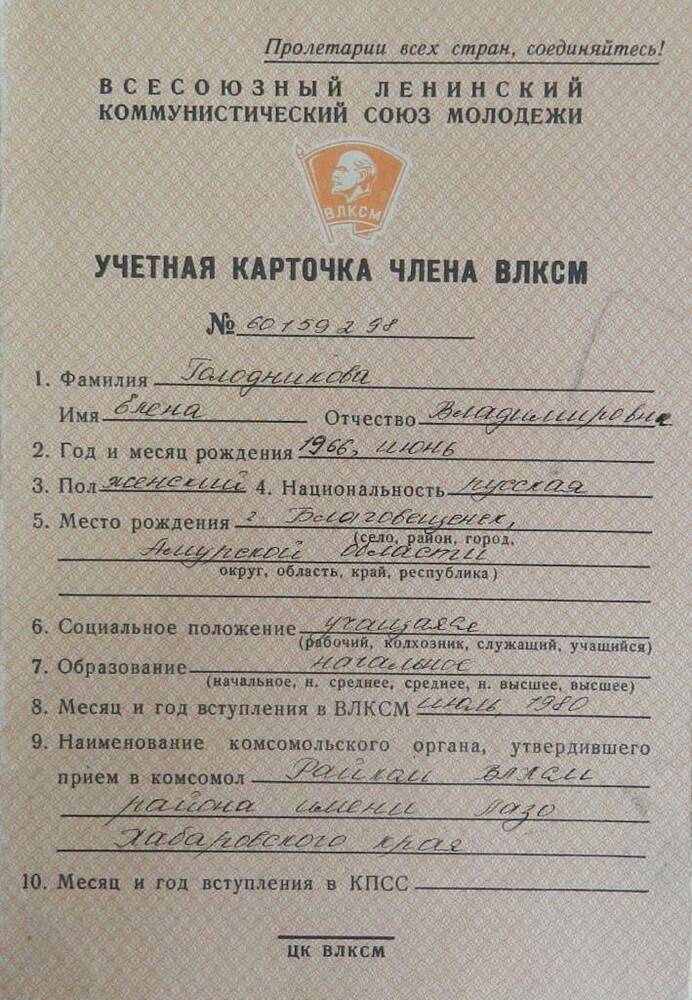 Пролетарии всех стран, соединяйтесь!
ВСЕСОЮЗНЫЙ ЛЕНИНСКИЙ
КОММУНИСТИЧЕСКИЙ СОЮЗ МОЛОДЕЖИ
ВЛКСМ
УЧЕТНАЯ КАРТОЧКА ЧЛЕНА ВЛКСМ
№ 60159298
1. Фамилия Голодникова
Имя Елена Отчество Владимировна
2. Год и месяц рождения 1966, июнь
3. Пол женский 4. Национальность русская
5. Место рождения г Благовещенск,
(село, район, город,
Амурской области
округ, область, край, республика)
6. Социальное положение учащаяся
(рабочий, колхозник, служащий, учащийся)
7. Образование начальное
(начальное, н. среднее, среднее, н. высшее, высшее)
8. Месяц и год вступления в ВЛКСМ июль, 1980
9. Наименование комсомольского органа, утвердившего
прием в комсомол Райком ВЛКСМ
района имени Лазо
Хабаровского края
10. Месяц и год вступления в КПСС
ЦК ВЛКСМ